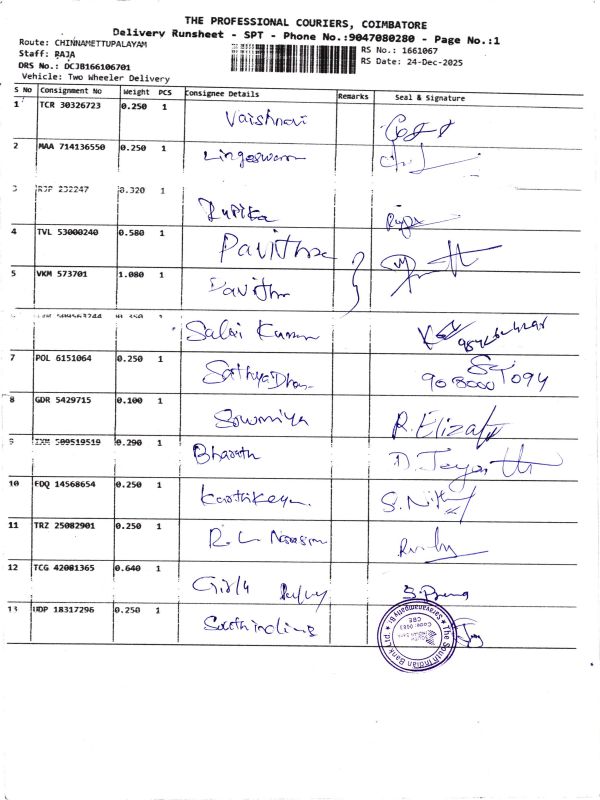 THE PROFESSIONAL COURIERS, COIMBATORE
Delivery Runsheet - SPT - Phone No.:9047080280 - Page No.:1
Route: CHINNAMETTUPALAYAM
Staff: RAJA
DRS No.: DCJB166106701
Vehicle: Two Wheeler Delivery
RS No.: 1661067
RS Date: 24-Dec-2025
S No Consignment No Weight PCS Consignee Details Remarks Seal & Signature
1 TCR 30326723 0.250 1 Vaishnavi
2 MAA 714136550 0.250 1 Lingeswaran
3 232247 0.320 1 Rupika
4 TVL 53000240 0.580 1 Pavithra
5 VKM 573701 1.080 1 Pavithra
1 Salai Kumaran
7 POL 6151064 0.250 1 SathyaDharan
8 GDR 5429715 0.100 1 Sowmiya R. Elizab
9 IXM 509519519 0.290 1 Bharath D. Jayanth
10 EDQ 14568654 0.250 1 Karthikeyan.
11 TRZ 25082901 0.250 1 R. L Narasim
12 TCG 42081365 0.640 1
13 UDP 18317296 0.250 1 South indians
The South Indian Bank Ltd